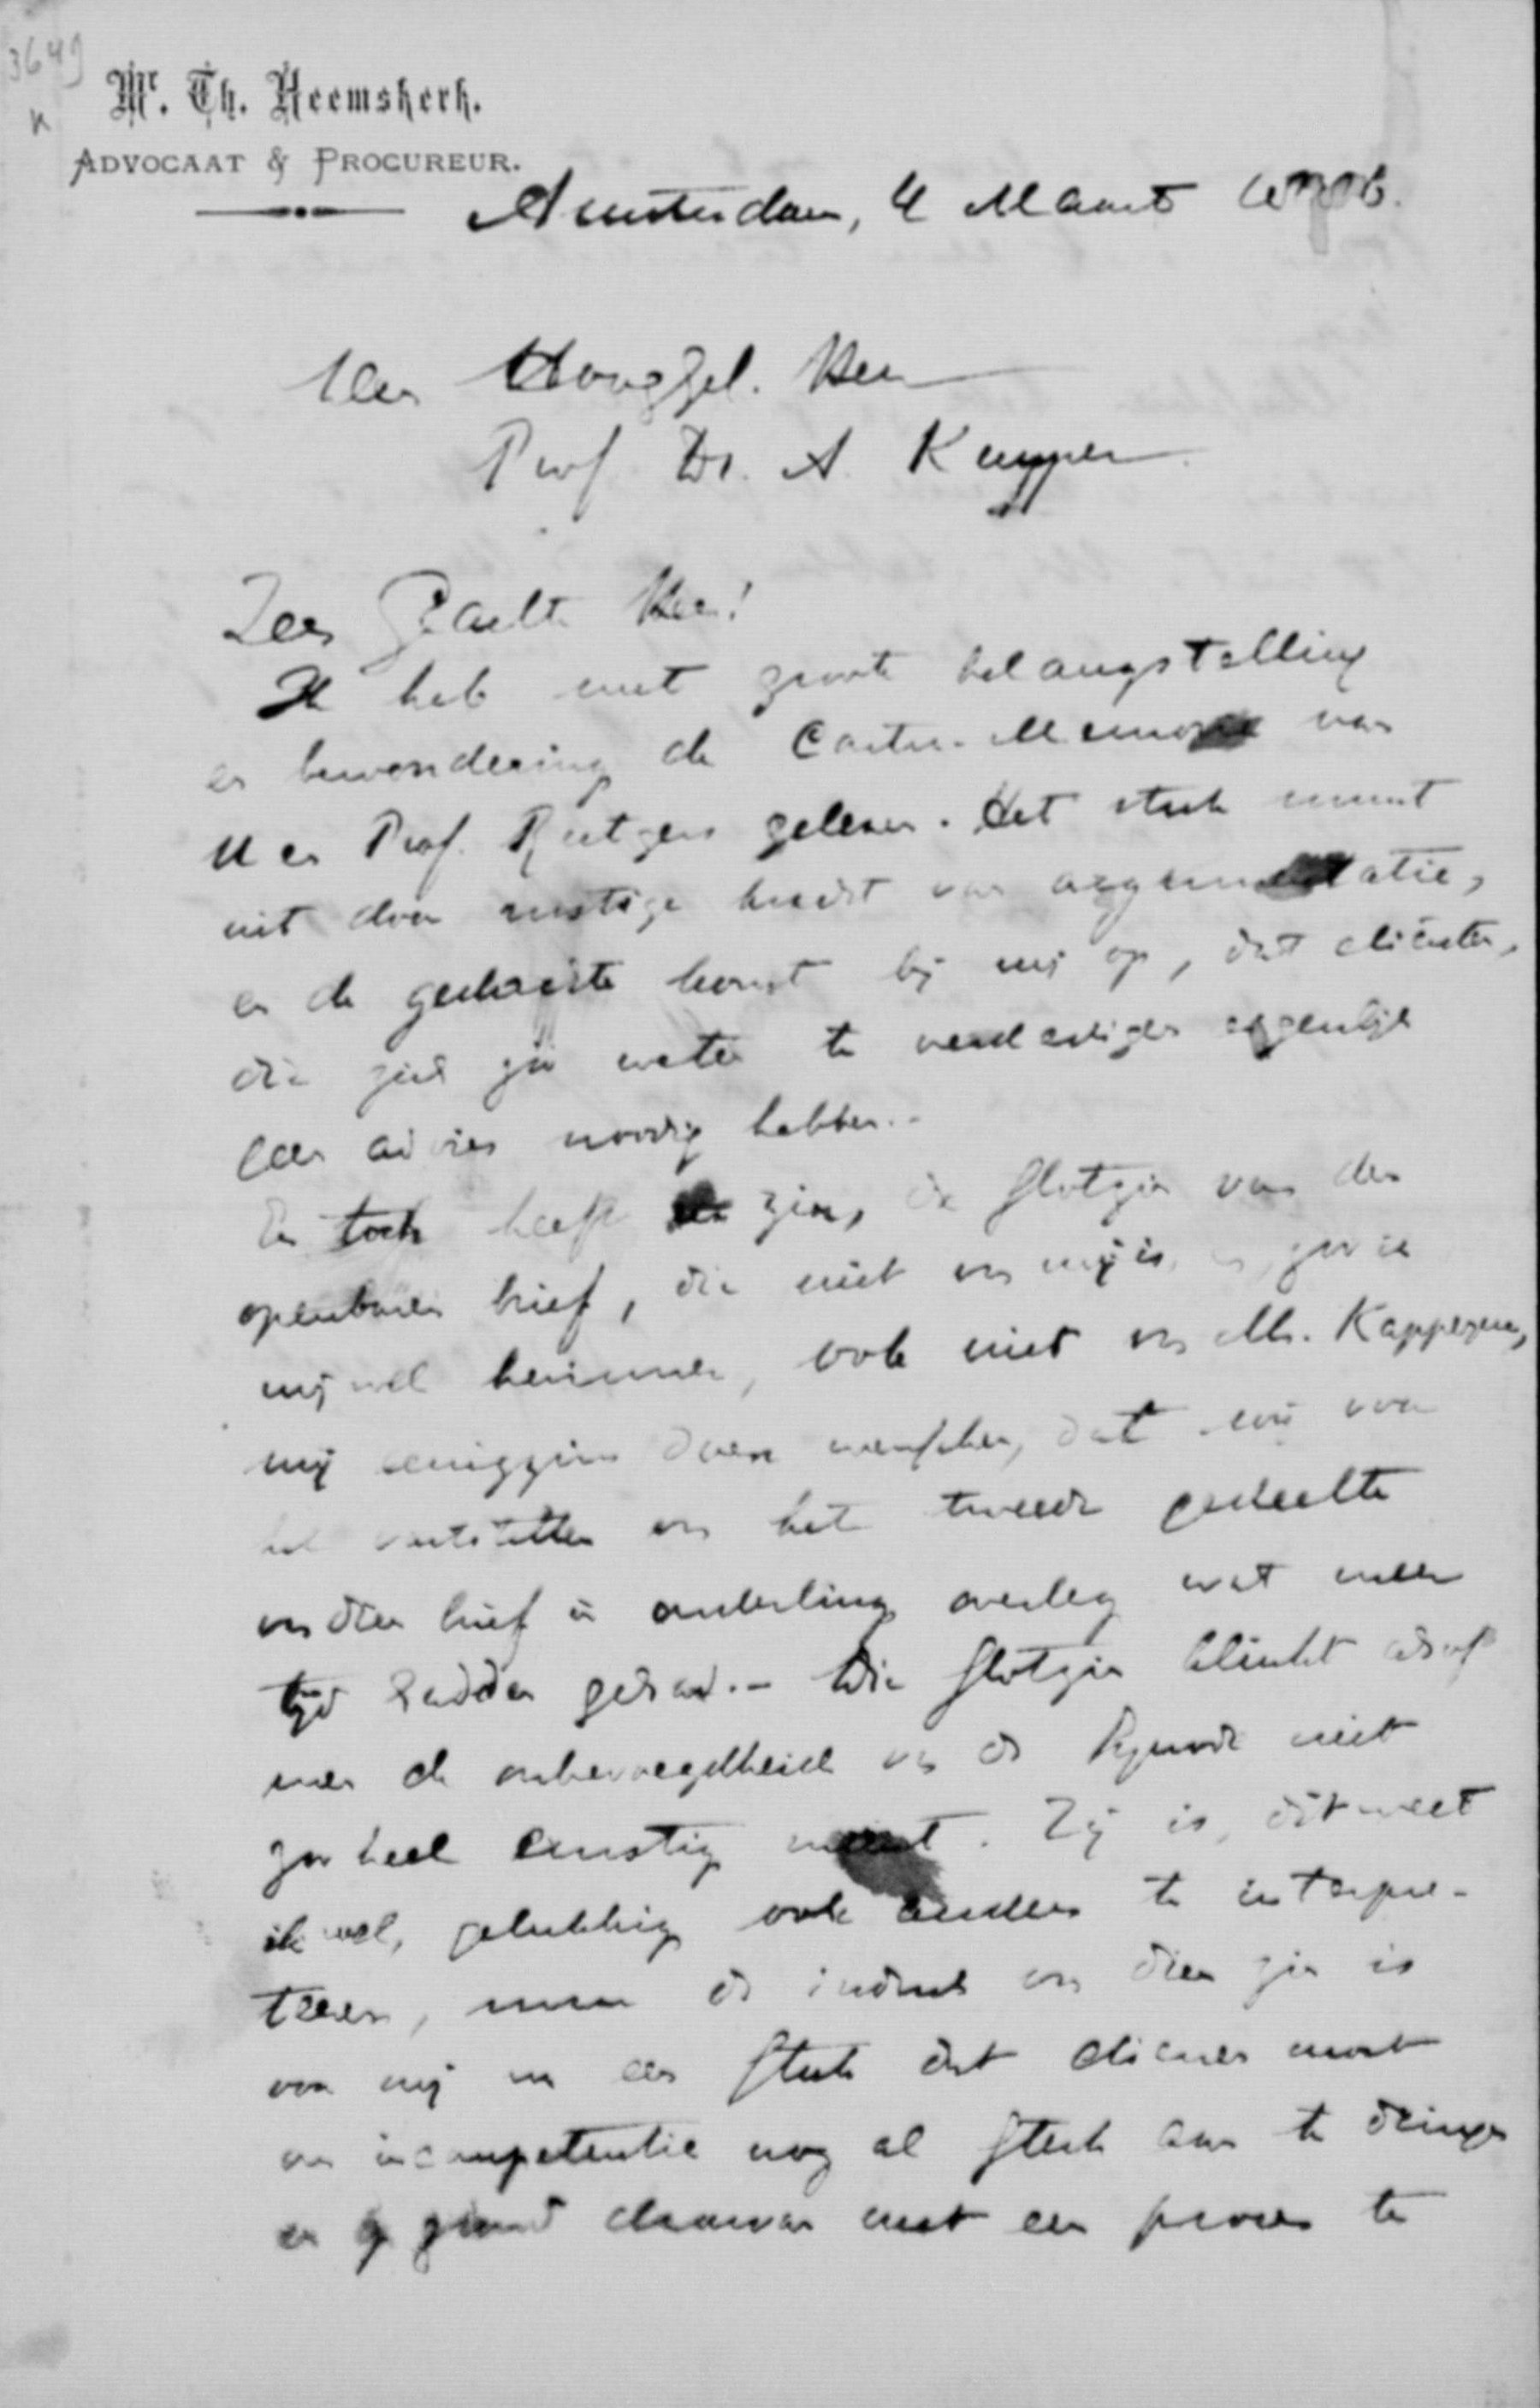 3649
K
Mr. Th. Heemskerk.
ADVOCAAT & PROCUREUR.
Amsterdam, 4 Maart
Den Hooggel. Heer
Prof Dr. A Kuyper
Zeer Geachte Heer!
Ik heb met groote belangstelling
en bewondering de Contra-Memorie van
U en Prof. Rutgers gelezen. Het stuk munt
uit door rustige kracht van argumentatie,
en de gedachte komt bij mij op, dat cliënten,
die zich zoo weten te verdedigen eigenlijk
geen advies noodig hebben.-
En toch heeft de zin, de slotzin van den
openbaren brief, die niet van mij is, en, zoo ik
mij wel herinner, ook niet van Mr. Kappeyne,
mij eenigzins doen wenschen, dat wij voor
het vaststellen van het tweede gedeelte
van dien brief in onderling overleg wat meer
tijd hadden gehad.- Die slotzin klinkt alsof
men de onbevoegdheid van de Synode niet
zoo heel ernstig meent. Zij is, dit weet
ik wel, gelukkig ook anders te interpre-
teeren, maar de indruk van dien zin is
voor mij in een stuk dat dienen moet
om incompetentie nog al sterk aan te dringen
en op grond daarvan met een proces te